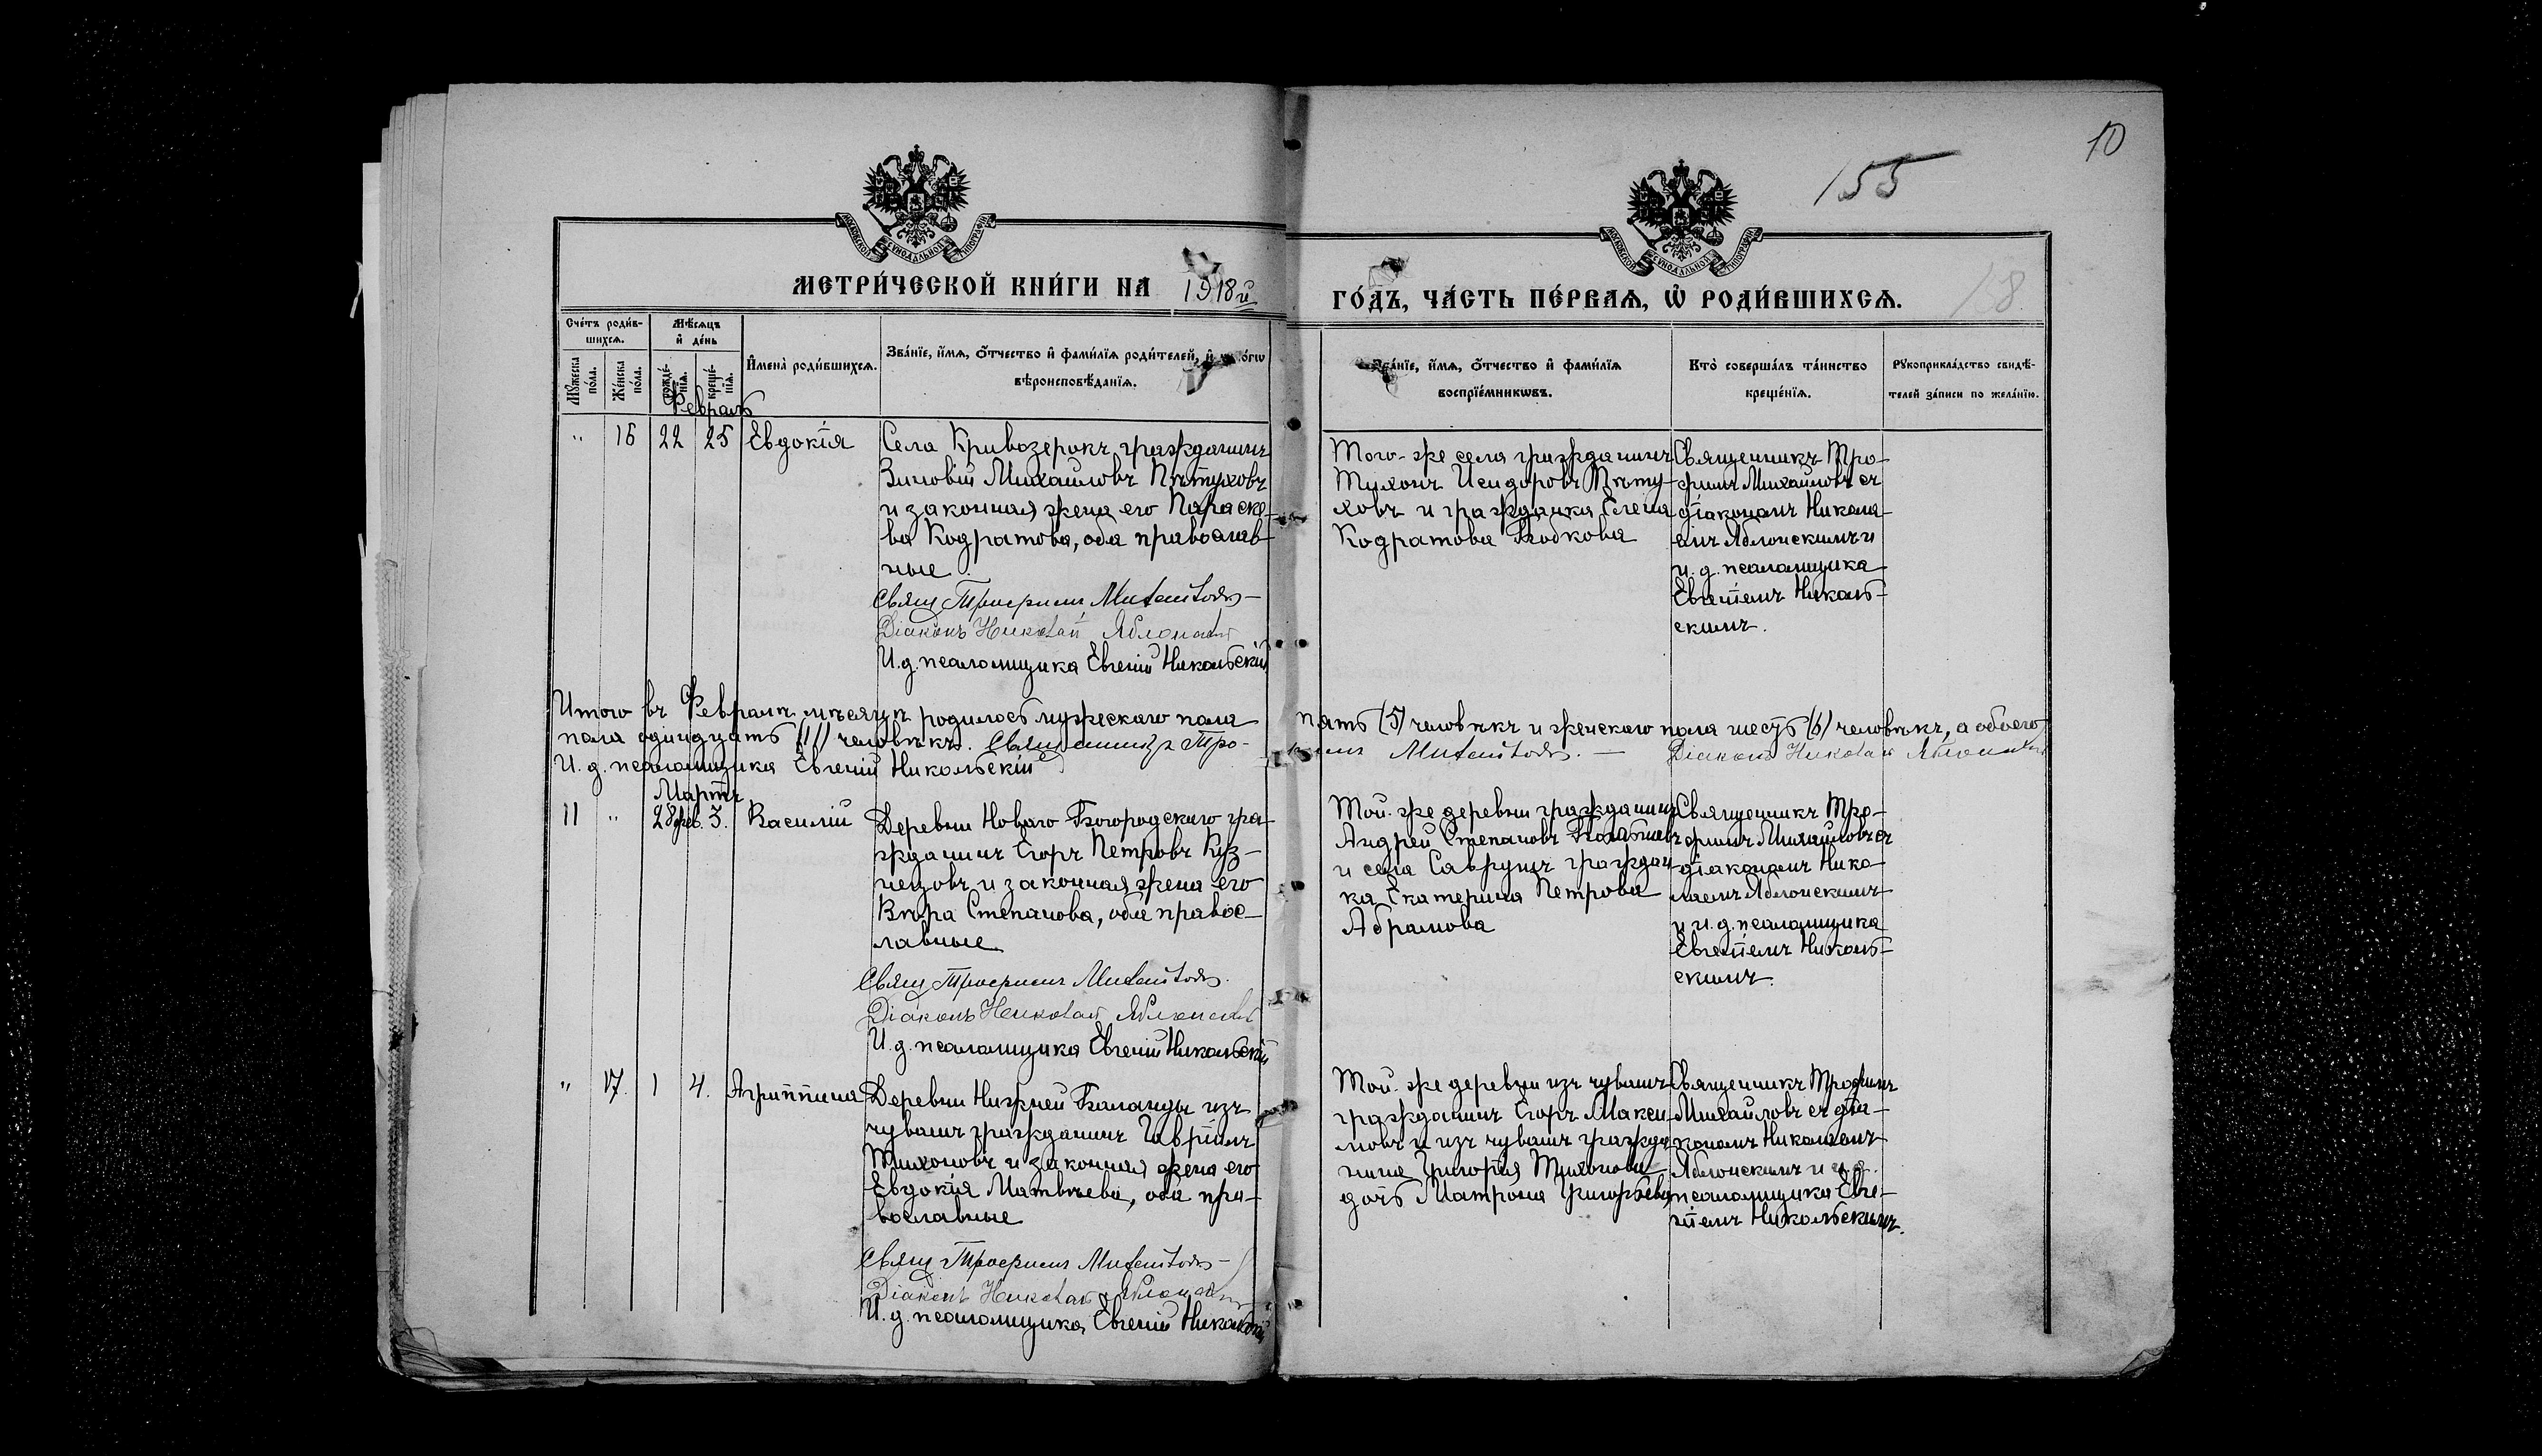 10
155
18.
МОСКОВСКОЙ СѴНОДАЛЬНОЙ ТИПОГРАФІИ
МОСКОВСКОЙ СѴНОДАЛЬНОЙ ТИПОГРАФІИ
МЕТРИ́ЧЕСКОЙ КНИ́ГИ НА 1918 й
ГО́ДЪ, ЧА́СТЬ ПЕ́РВАѦ, Ѡ҆ РОДИ́ВШИХСѦ.
Сче́тъ роди́в-
шихсѧ.
Мꙋжеска по́ла.
Же́нска по́ла.
Мѣ́сѧцъ
и҆ де́нь
рожде́-
нїѧ.
креще́-
нїѧ.
И҆мена̀ роди́вшихсѧ.
Зва́нїе, и҆́мѧ, ѻ҆́тчество и҆ фами́лїѧ роди́телей, и҆
вѣроисповѣ́данїѧ.
Зва́нїе, и҆́мѧ, ѻ҆́тчество и҆ фами́лїѧ
воспрїе́мникѡвъ.
Кто̀ соверша́лъ та́инство
креще́нїѧ.
Рꙋкоприкла́дство свидѣ́-
телей за́писи по жела́нїю.
Февраль
" 16 22 25 Евдокія
Села Кривозерокъ гражданинъ
Зиновій Михаиловъ Пѣтуховъ
и законная жена его Параске-
ва Кодратова, оба православ-
ные.
Свящ Трофимъ Михайловъ
Діаконъ Николай Яблонскій
И.д. псаломщика Евгеній Никольскій
Того-же села гражданинъ
Тихонъ Исидоровъ Пѣту-
ховъ и гражданка Елена
Кодратова
Священникъ Тро-
фимъ Михайловъ съ
діакономъ Никола-
емъ Яблонскимъ и
и. д. псаломщика
Евгеніемъ Николь-
скимъ.
Итого въ Февралѣ мѣсяцѣ родилось мужескаго пола пять (5) человѣкъ и женскаго пола шесть (6) человѣкъ, а обоего
пола одинадцать (11) человѣкъ. Священникъ Трофимъ Михайловъ. — Діаконъ Николай Яблонскій
И. д. псаломщика Евгеній Никольскій
Мартъ
11 " 28 фев. 3. Василій
Деревни Новаго Богородскаго гра-
жданинъ Егоръ Петровъ Куз-
нецовъ и законная жена его
Вѣра Степанова, оба правос-
лавные
Свящ Трофимъ Михайловъ.
Діаконъ Николай Яблонскій
И. д. псаломщика Евгеній Никольскій
Той-же деревни гражданинъ
Андрей Степановъ
и села Саврушъ граждан-
ка Екатерина Петрова
Абрамова
Священникъ Тро-
фимъ Михайловъ съ
діакономъ Нико-
лаемъ Яблонскимъ
и и. д. псаломщика
Евгеніемъ Николь-
скимъ.
" 17. 1 4. Агриппина
Деревни Нижней Баланды изъ
чувашъ гражданинъ Гавріилъ
Тихоновъ и законная жена его
Евдокія Матвѣева, оба пра-
вославные
Свящ Трофимъ Михайловъ
Діаконъ Николай Яблонскій
И. д. псаломщика Евгеній Никольскій
Той-же деревни изъ чувашъ
гражданинъ Егоръ Макси-
мовъ и изъ чувашъ гражда-
нина Григорія Тихонова
дочь Матрона Григорьева
Священникъ Трофимъ
Михайловъ съ діа-
кономъ Николаемъ
Яблонскимъ и и д.
псаломщика Евге-
ніемъ Никольскимъ.